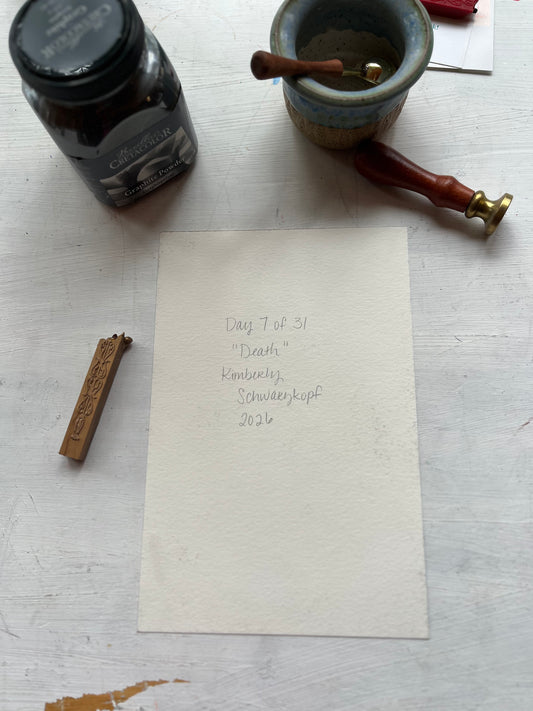 CRETACOLOR
Graphite Powder
Day 7 of 31
"Death"
Kimberly
Schwarzkopf
2026